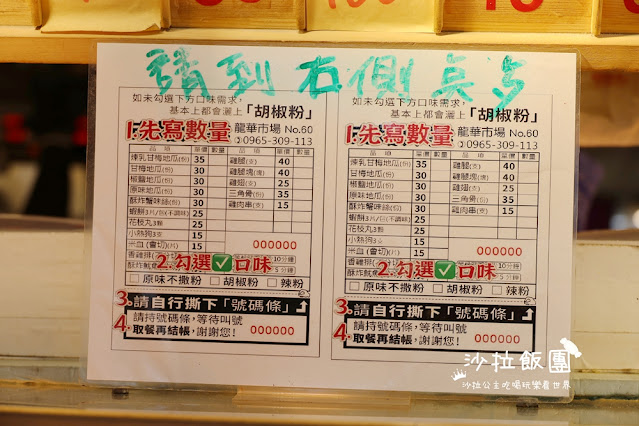 請到右側點
如未勾選下方口味需求,
基本上都會灑上「胡椒粉」
1.先寫數量 龍華市場 No.60
0965-309-113
品項 單價 數量 品項 單價 數量
煉乳甘梅地瓜(份) 35 雞腿(支) 40
甘梅地瓜(份) 30 雞腿塊(塊) 40
椒鹽地瓜(份) 30 雞翅(支) 25
原味地瓜(份) 30 三角骨(份) 35
酥炸蟹味絲(份) 30 雞肉串(支) 15
蝦餅3片/份(不調味) 25
花枝丸3顆 25
小熱狗3支 15
米血(會切)(片) 15 000000
香雞排 10分鐘
酥炸魷魚 5分鐘
2.勾選✅口味
□原味不撒粉 □胡椒粉 □辣粉
3.請自行撕下「號碼條」
4.請持號碼條,等待叫號
取餐再結帳,謝謝您! 000000
如未勾選下方口味需求,
基本上都會灑上「胡椒粉」
1.先寫數量 龍華市場 No.60
0965-309-113
品項 單價 數量 品項 單價 數量
煉乳甘梅地瓜(份) 35 雞腿(支) 40
甘梅地瓜(份) 30 雞腿塊(塊) 40
椒鹽地瓜(份) 30 雞翅(支) 25
原味地瓜(份) 30 三角骨(份) 35
酥炸蟹味絲(份) 30 雞肉串(支) 15
蝦餅3片/份(不調味) 25
花枝丸3顆 25
小熱狗3支 15
米血(會切)(片) 15 000000
香雞排 10分鐘
酥炸魷魚 5分鐘
2.勾選✅口味
□原味不撒粉 □胡椒粉 □辣粉
3.請自行撕下「號碼條」
4.請持號碼條,等待叫號
取餐再結帳,謝謝您! 000000
沙拉飯團
沙拉公主吃喝玩樂看世界